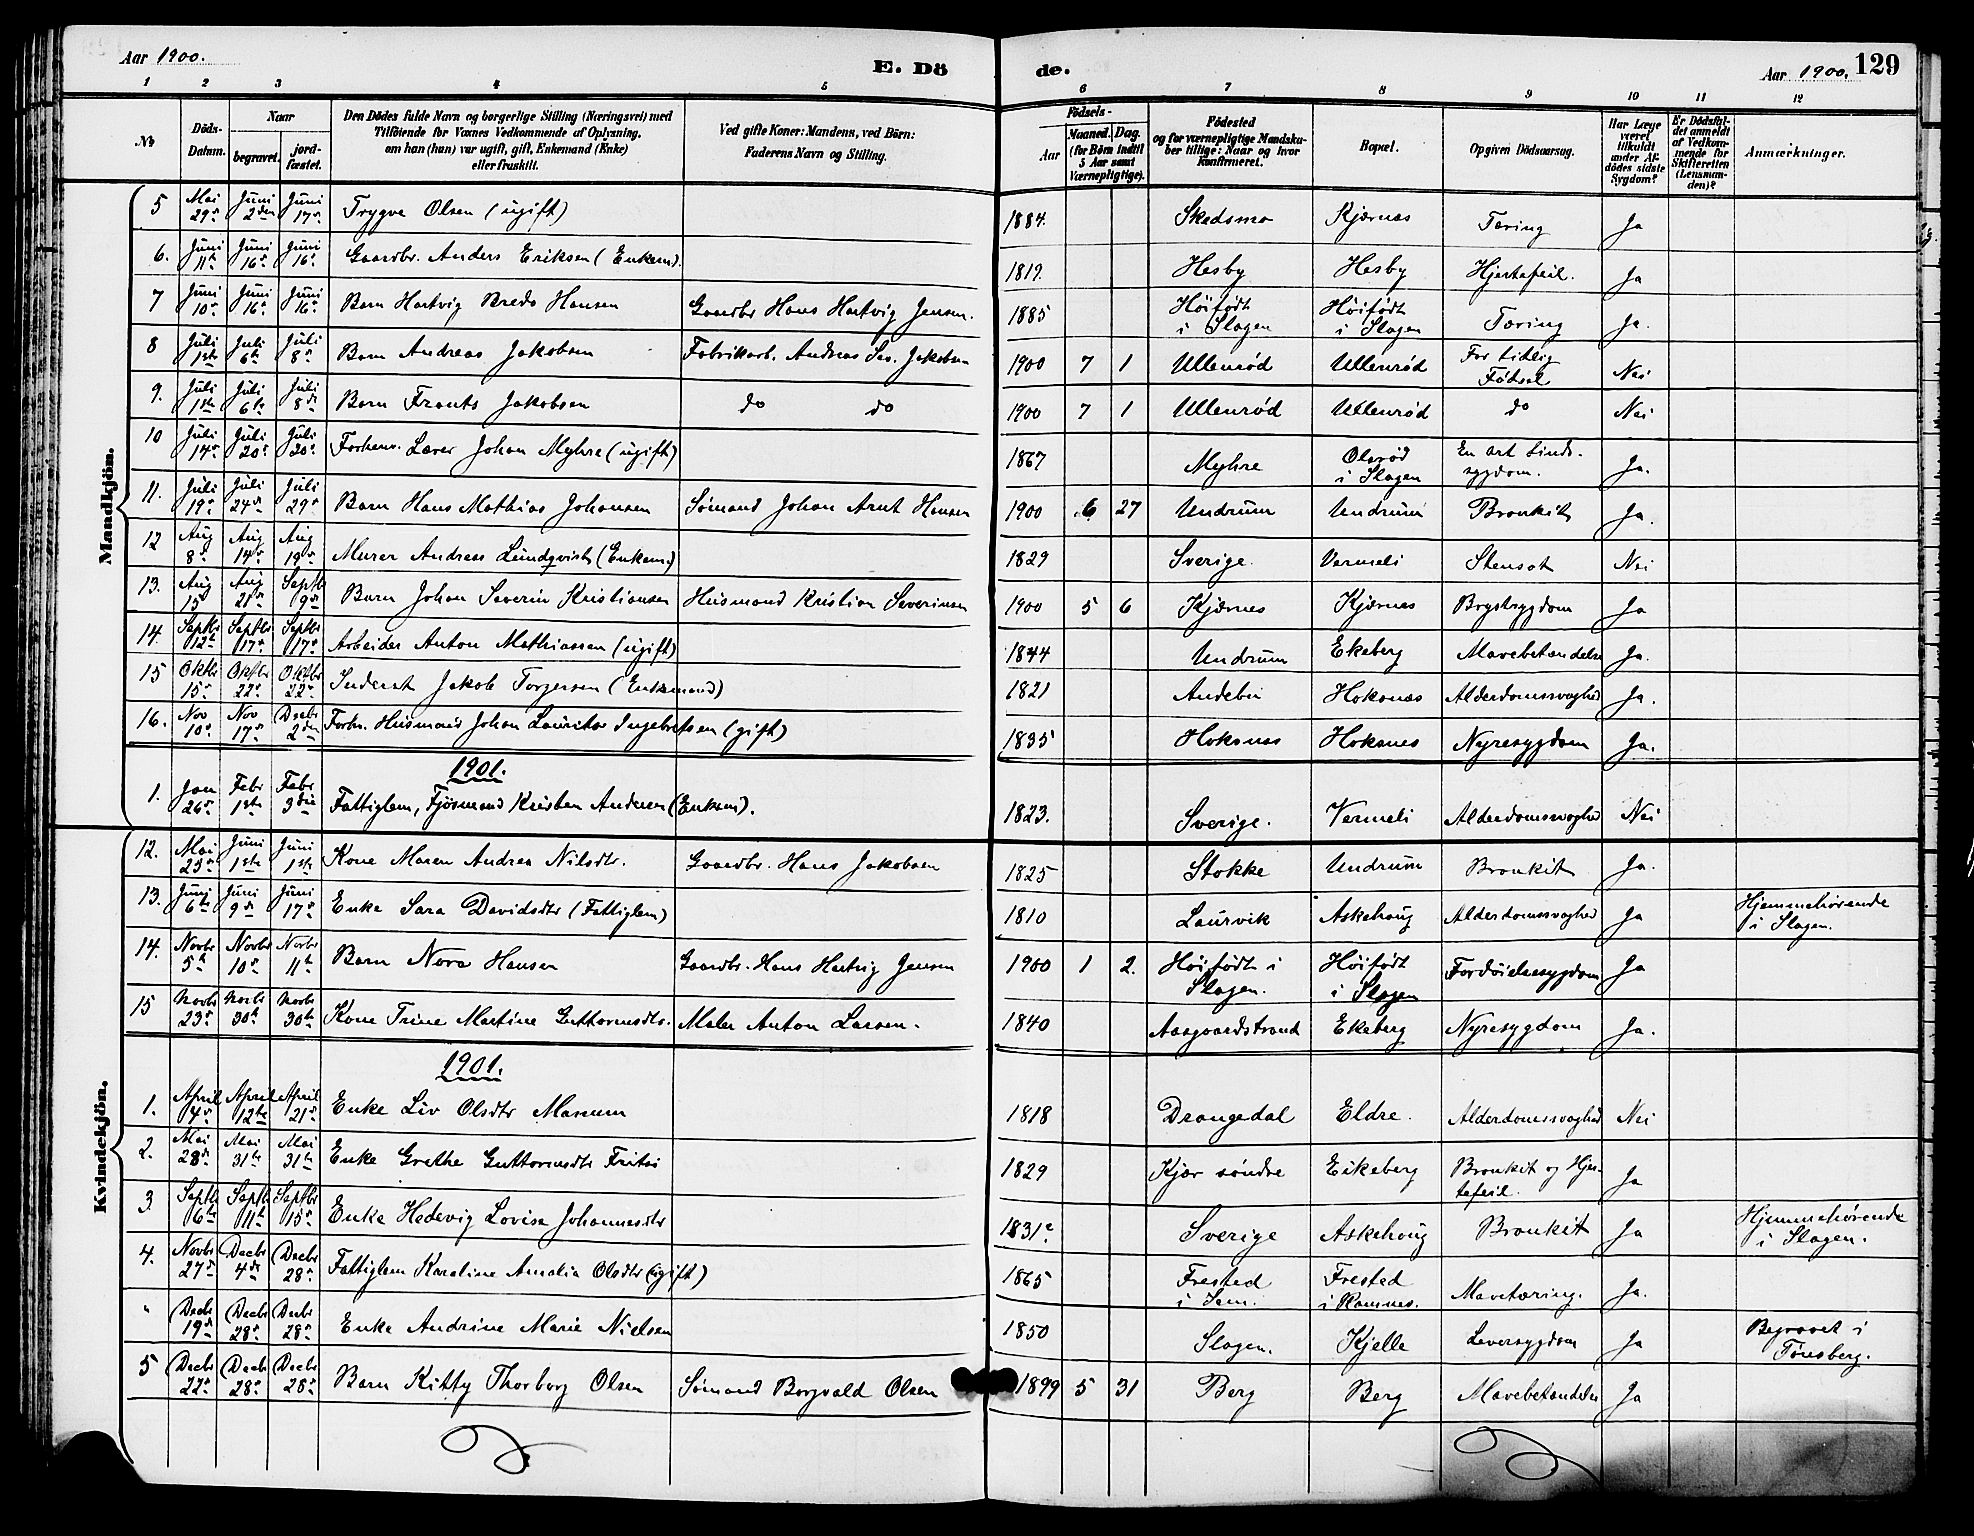 Aar 1900.
E. Dö
de.
Aar 1900.
129
1 2 3 4 5 6 7 8 9 10 11 12
No
Döds-Datum.
Naar
begravet.
jord-fæstet.
Den Dödes fulde Navn og borgerlige Stilling (Næringsvei) med
Tilföiende for Voxnes Vedkommende af Oplysning,
om han (hun) var ugift, gift, Enkemand (Enke)
eller fraskilt.
Ved gifte Koner: Mandens, ved Börn:
Faderens Navn og Stilling.
Födsels-
Aar
Maaned. Dag.
(for Börn indtil
5 Aar samt
Værnepligtige).
Födested
og for værnepligtige Mandsku-
ber tillige: Naar og hvor
konfirmeret.
Bopæl.
Opgiven Dödsaarsag.
Har Læge
været
tilkaldt
under Af-
dödes sidste
Sygdom?
Er Dödsfal-
det anmeldt
af Vedkom-
mende for
Skifteretten
(Lensman-
den)?
Anmærkninger.
Mandkjön.
5 Mai 29de Juni 2den Juni 17de Trygve Olsen (ugift) 1884. Skedsmo Kjærnæs Tæring Ja
6. Juni 11te Juni 16de Juni 16de Gaardbr. Anders Eriksen (Enkem). 1819. Hesby Hesby Hjertefeil. Ja
7 Juni 10de Juni 16de Juni 16de Barn Hartvig Bredo Hansen Gaardbr Hans Hartvig Jensen. 1885 Höifödt i Slagen Höifödt i Slagen Tæring Ja.
8 Juli 1ste Juli 6te Juli 8de Barn Andreas Jakobsen Fabrikarb. Andreas Jakobsen 1900 7 1 Ullenrød Ullenrød For tidlig Fødsel Nei
9. Juli 1ste Juli 6te Juli 8de Barn Frants Jakobsen do do 1900 7 1 Ullenrød Ullenrød do Nei
10 Juli 14de Juli 20de Juli 20de Forhenv. Lærer Johan Myhre (ugift) 1867 Myhre Olsrød i Slagen En art Sinds-sygdom. Ja.
11. Juli 19de Juli 24de Juli 29de Barn Hans Mathias Johansen Sømand Johan Arnt Hansen 1900 6 27 Undrum Undrum Bronkit Ja.
12 Aug 8de Aug 14de Aug 19de Murer Andreas Lundqvist (Enkem.) 1829 Sverige. Vermeli Stensot Nei
13. Aug 15 Aug 21de Septbr 9de Barn Johan Severin Kristiansen Husmand Kristian Severinsen 1900 5 6 Kjærnes Kjærnæs Brystsygdom Ja
14. Septbr 12te Septbr 17de Septbr 17de Arbeider Anton Mathiassen (ugift) 1844 Undrum Ekeberg Mavebetændelse Ja.
15 Oktbr 15de Oktbr 22de Oktbr 22de Inderst Jakob Torgersen (Enkemand) 1821 Andebu Hoksnæs Alderdomssvaghed Ja.
16. Nov 10de Nov 17de Decbr 2den Forhv. Husmand Johan Lauritz Ingebretsen (gift) 1835 Hoksnes Hoksnes Nyresygdom Ja.
1901.
1. Jan 26de Febr 1ste Febr 3die Fattiglem, Fjösmand Kristen Andersen (Enkem). 1823. Sverige. Vermeli Alderdomssvaghed Nei
Kvindekjön.
12. Mai 25de Juni 1ste Juni 1ste Kone Maren Andrea Nilsdtr. Gaardbr. Hans Jakobsen 1825 Stokke Undrum Bronkit Ja.
13. Juni 6te Juni 9de Juni 17de Enke Sara Davidsdtr (Fattiglem) 1810 Laurvik Askehoug Alderdomssvaghed Ja Hjemmehørende i Slagen.
14. Novbr 5te Novbr 10de Novbr 11te Barn Nora Hansen Gaardbr. Hans Hartvig Jensen 1900 1 2. Höifödt i Slagen. Höifödt i Slagen Fordöielsessygdom Ja
15 Novbr 23de Novbr 30te Novbr 30te Kone Trine Martine Guttormsdtr. Maler Anton Larsen. 1840 Aasgaardstrand Ekeberg Nyresygdom Ja.
1901.
1. April 4de April 12te April 21de Enke Liv Olsdtr Marum 1818 Drangedal Eldre. Alderdomssvaghed Nei
2. Mai 28de Mai 31te Mai 31te Enke Grethe Guttormsdtr Fritsi 1829 Kjær søndre Eikeberg Bronkit og Hjer-tefeil. Ja
3. Septbr 6te Septbr 11te Septbr 15de Enke Hedevig Lovise Johannesdtr 1831 Sverige Askehoug Bronkit Ja Hjemmehørende i Slagen.
4. Novbr 27de Decbr 4de Decbr 28de Fattiglem Karoline Amalia Olsdtr (ugift) 1865 Frested i Sem. Frested i Ramnes. Mavetæring. Ja.
" Decbr 19de Decbr 28de Decbr 28de Enke Andrine Marie Nielsen 1850 Slagen. Kjelle Leversygdom Ja Begravet i Tønsberg.
5 Decbr 22de Decbr 28de Decbr 28de Barn Kitty Thorborg Olsen Sømand Borgvald Olsen 1899 5 31 Berg Berg Mavebetændelse Ja